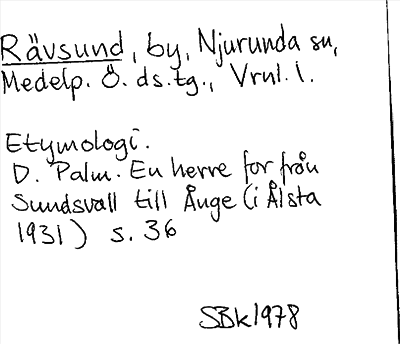 Rävsund, by, Njurunda sn,
Medelp. Ö. ds. tg., Vrnl. l.
Etymologi.
D. Palm. En herre for från
Sundsvall till Ånge (i Ålsta
1931) s. 36
SBk1978